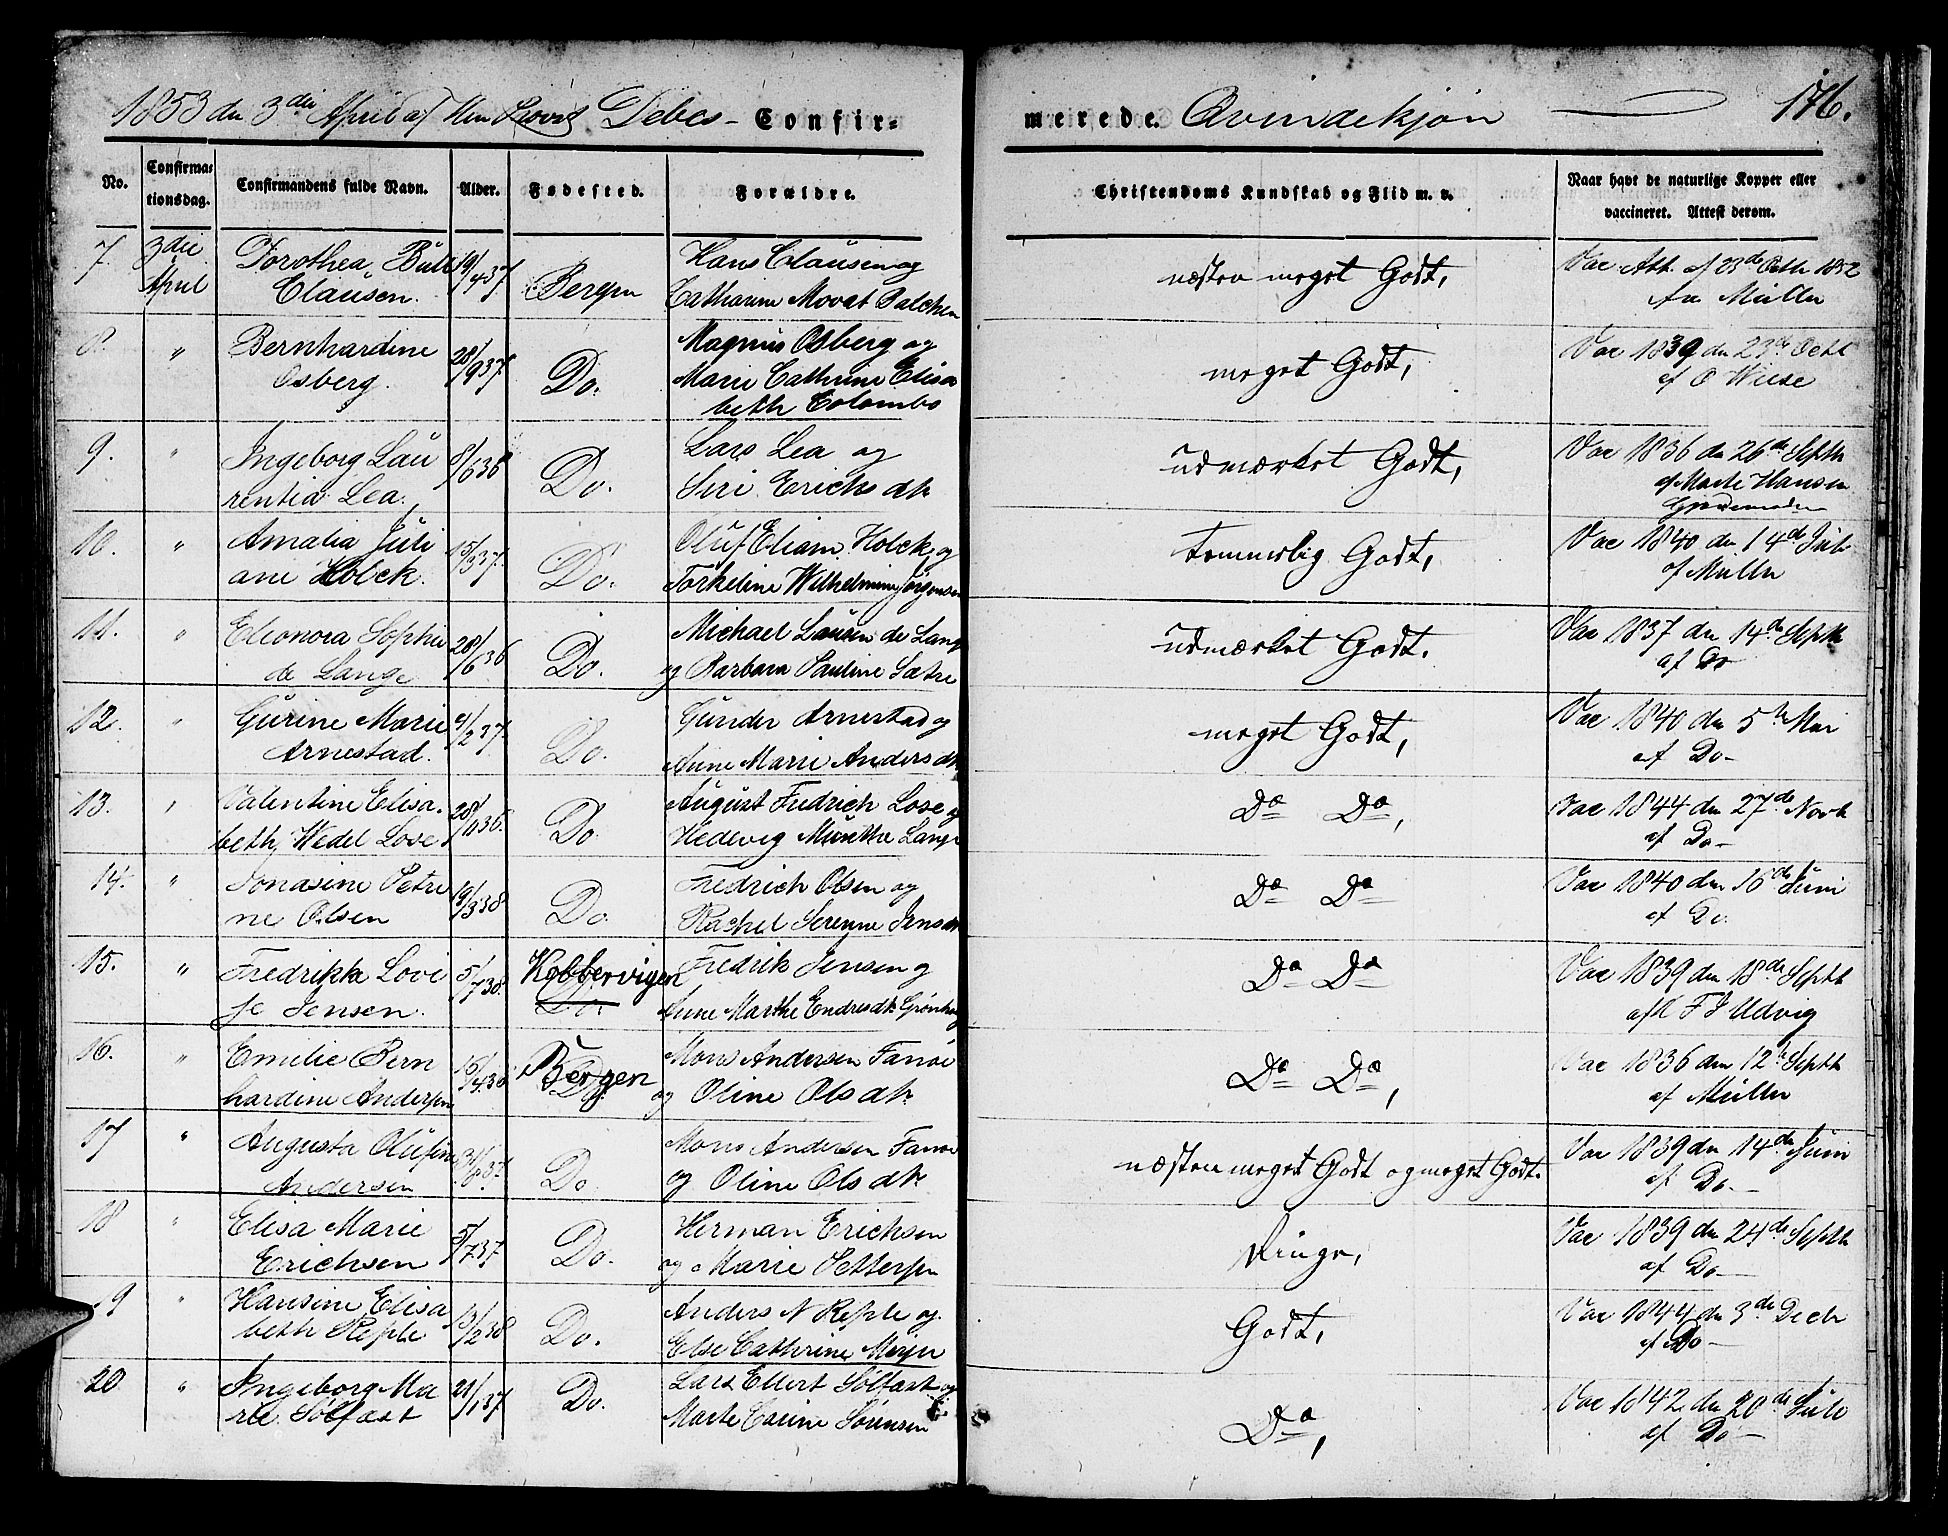 1853 den 3die April af Hen Debes - Confir-
merede. Qvindekjøn 176.
No. Confirma- Confirmandens fulde Navn. Alder. Fødested. Forældre. Christendoms Kundskab og Flid m. v. Naar havt de naturlige Kopper eller
tionsdag. vaccineret. Attest derom.
7. 3die Dorothea Bull 19/4 37 Bergen Hans Clausen og næsten meget Godt, Vac Att. af 23de Octb 1852
April Clausen. Catharine Movat Balchen Müller
8. " Bernhardine 28/9 37 Do. Magnus Osberg og meget Godt, Vac 1839 den 23de Octb
Osberg. Marie Cathrine Elisa af O Wiese
beth Colombo
9. " Ingeborg Lau 8/6 36 Do. Lars Lea og udmærket Godt, Vac 1836 den 26de Septb
rentia Lea, Siri Erichsdtr af Marte Hansen
Gjordemoder
10. " Amalia Juli 15/3 37. Do. Oluf Eliam Holck og temmelig Godt, Vac 1840 den 14de Juli
ane Holck. Torkeline Wilhelmine Jørgensen af Müller
11. " Eleonora Sophie 28/6 36 Do. Michael Lausen de Lange udmærket Godt. Vac 1837 den 14de Septb
de Lange og Barbara Pauline Sætre af Do
12. " Gurine Marie 4/2 37. Do. Gunder Arnestad og meget Godt, Vac 1840 den 5te Mai
Arnestad. Anne Marie Andersdtr af Do-
13. " Valentine Elisa- 28/11 36. Do. August Fredrich Lose og Do Do, Vac 1844 den 27de Novb
beth Wedel Lose Hedevig Munthe Lange af Do-
14. " Jonasine Petri 19/3 38 Do. Fredrich Olsen og Do Do Vac 1840 den 16de Juni
ne Olsen Rachel Serenne Jensen af Do.
15. " Fredrikke Lovi 5/7 38. Kobbervigen Fredrik Jensen og Do Do Vac 1839 den 18de Septb
se Jensen. Do. Anne Marthe Endresdtr Grønhaug af F J Udvig
16. " Emilie Bern 16/4 38 Bergen Mons Andersen Fanøe Do Do, Vac 1836 den 12te Septb
hardine Andersen Do. og Oline Olsdtr. af Müller
17 " Augusta Olufine 37. Do Mons Andersen Fanøe næsten meget Godt og meget Godt. Vac 1839 den 14de Juni
Andersen og Oline Olsdtr. af Do.-
18 " Elisa Marie 5/7 37 Do. Herman Erichsen Ringe, Vac 1839 den 24de Septb
Erichsen og Marie Pettersen af Do-
19 " Hansine Elisa 13/2 38 Do. Anders N Reple og Godt, Vac 1844 den 3de Decb
beth Reple Else Cathrine Meyer af Do-
20 " Ingeborg Ma 21/1 37 Do. Lars Ellert Sølfast og Do, Vac 1842 den 20de Juli
rie Sølfast Marte Carine Sørensen af Do-